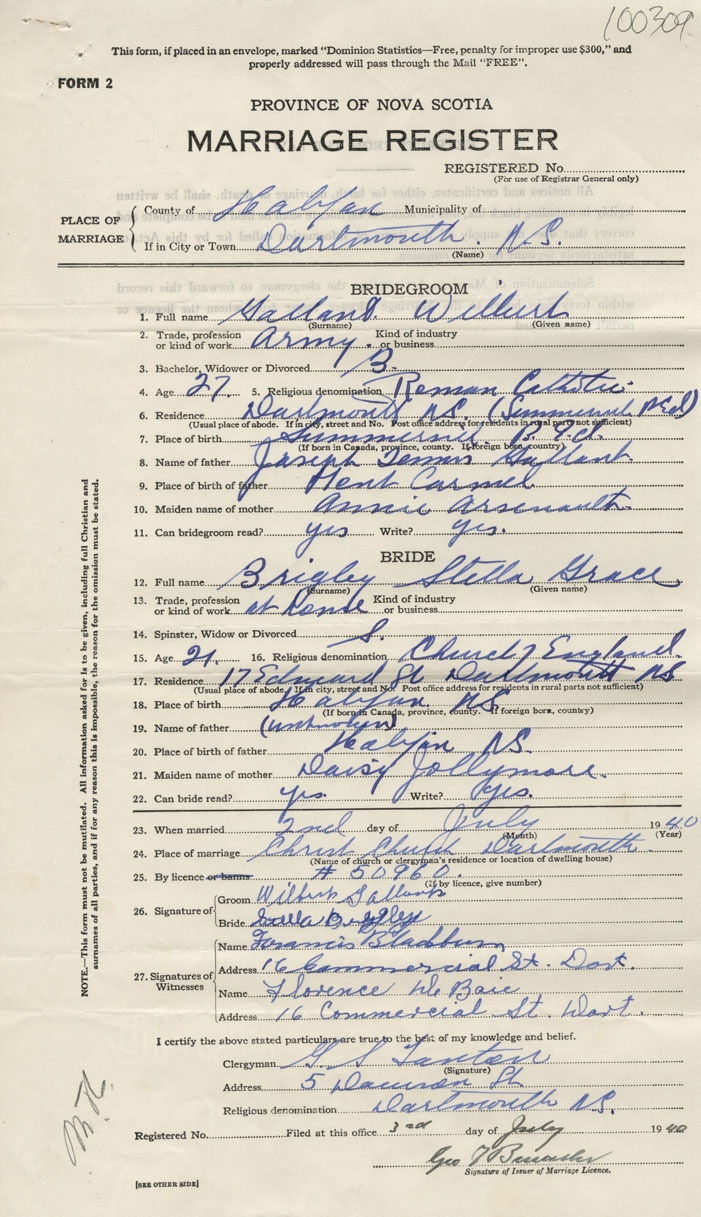 100309
This form, if placed in an envelope, marked "Dominion Statistics—Free, penalty for improper use $300," and
properly addressed will pass through the Mail "FREE".
FORM 2
PROVINCE OF NOVA SCOTIA
MARRIAGE REGISTER
REGISTERED No.
(For use of Registrar General only)
PLACE OF MARRIAGE
County of Halifax Municipality of
If in City or Town Dartmouth. N.S.
(Name)
BRIDEGROOM
1. Full name Gallant Wilbert
(Surname) (Given name)
2. Trade, profession or kind of work Army. Kind of industry or business
3. Bachelor, Widower or Divorced B.
4. Age 27. 5. Religious denomination Roman Catholic
6. Residence Dartmouth N.S. (Summerside P.E.I)
(Usual place of abode. If in city, street and No. Post office address for residents in rural part not sufficient)
7. Place of birth Summerside P.E.I.
(If born in Canada, province, county. If foreign born, country)
8. Name of father Joseph Gallant
9. Place of birth of father Carmel
10. Maiden name of mother Annie Arsenault
11. Can bridegroom read? yes Write? yes.
BRIDE
12. Full name Brigley Stella Grace
(Surname) (Given name)
13. Trade, profession or kind of work at home Kind of industry or business
14. Spinster, Widow or Divorced S.
15. Age 21. 16. Religious denomination Church of England.
17. Residence 17 Edward St Dartmouth NS
(Usual place of abode, If in city, street and No. Post office address for residents in rural parts not sufficient)
18. Place of birth Halifax N.S.
(If born in Canada, province, county. If foreign born, country)
19. Name of father (unknown)
20. Place of birth of father Halifax N.S.
21. Maiden name of mother Daisy Jollymore.
22. Can bride read? yes. Write? yes.
23. When married 2nd day of July 1940
(Month) (Year)
24. Place of marriage Christ Church Dartmouth
(Name of church or clergyman's residence or location of dwelling house)
25. By licence or banns # 50960.
(If by licence, give number)
26. Signature of
Groom Wilbert Gallant
Bride Stella Brigley
27. Signatures of Witnesses
Name Francis Blackburn
Address 16 Commercial St. Dart.
Name Florence De Baie
Address 16 Commercial St. Dart.
I certify the above stated particulars are true to the best of my knowledge and belief.
Clergyman G. S. Tanton
(Signature)
Address 5 Dawson St
Religious denomination Dartmouth N.S.
Registered No. Filed at this office 3rd day of July 1940
Geo
Signature of Issuer of Marriage Licence.
[SEE OTHER SIDE]
NOTE.—This form must not be mutilated. All information asked for is to be given, including full Christian and
surnames of all parties, and if for any reason this is impossible, the reason for the omission must be stated.